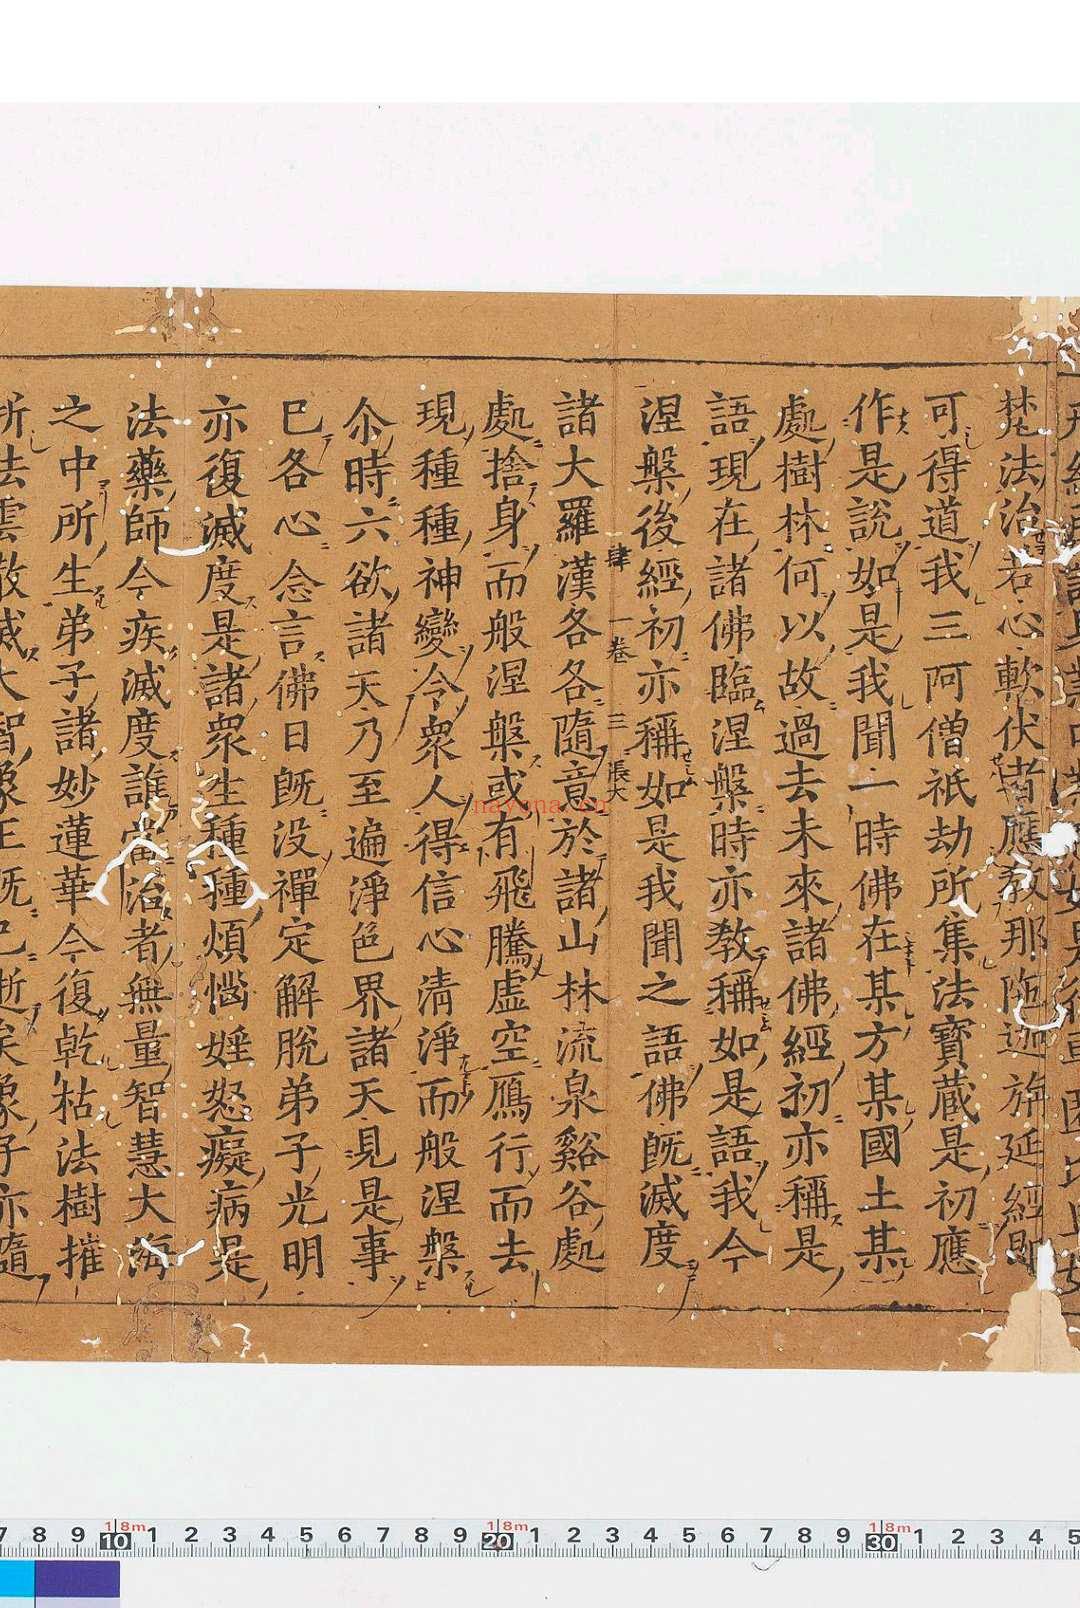 梵法治若心軟伏者應教那陁迦旃延經即
可得道我三阿僧祇劫所集法寶蔵是初應
作是說如是我聞一時佛在某方某國土某
處樹林何以故過去未來諸佛經初亦稱是
語現在諸佛臨涅槃時亦教稱如是語我今
涅槃後經初亦稱如是我聞之語佛旣滅度
肆 一卷 三張 大
諸大羅漢各各隨意於諸山林流泉谿谷處
處捨身而般涅槃或有飛騰虛空鴈行而去
現種種神變令衆人得信心清淨而般涅槃
尒時六欲諸天乃至遍淨色界諸天見是事
已各心念言佛日旣没禪定解脫弟子光明
亦復滅度是諸衆生種種煩惱婬怒癡病是
法藥師今疾滅度誰當治者無量智慧大海
之中所生弟子諸妙蓮華今復乾枯法樹摧
折法雲散滅大智象王旣已逝矣象子亦隨
7 8 9 10 1 2 3 4 5 6 7 8 9 20 1 2 3 4 5 6 7 8 9 30 1 2 3 4 5
nayona.cn